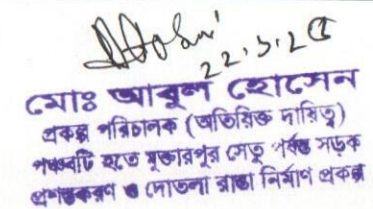 22.5.25
মোঃ আবুল হোসেন
প্রকল্প পরিচালক (অতিরিক্ত দায়িত্ব)
পঞ্চবটি হতে মুক্তারপুর সেতু পর্যন্ত সড়ক
প্রশস্তকরণ ও দোতলা রাস্তা নির্মাণ প্রকল্প